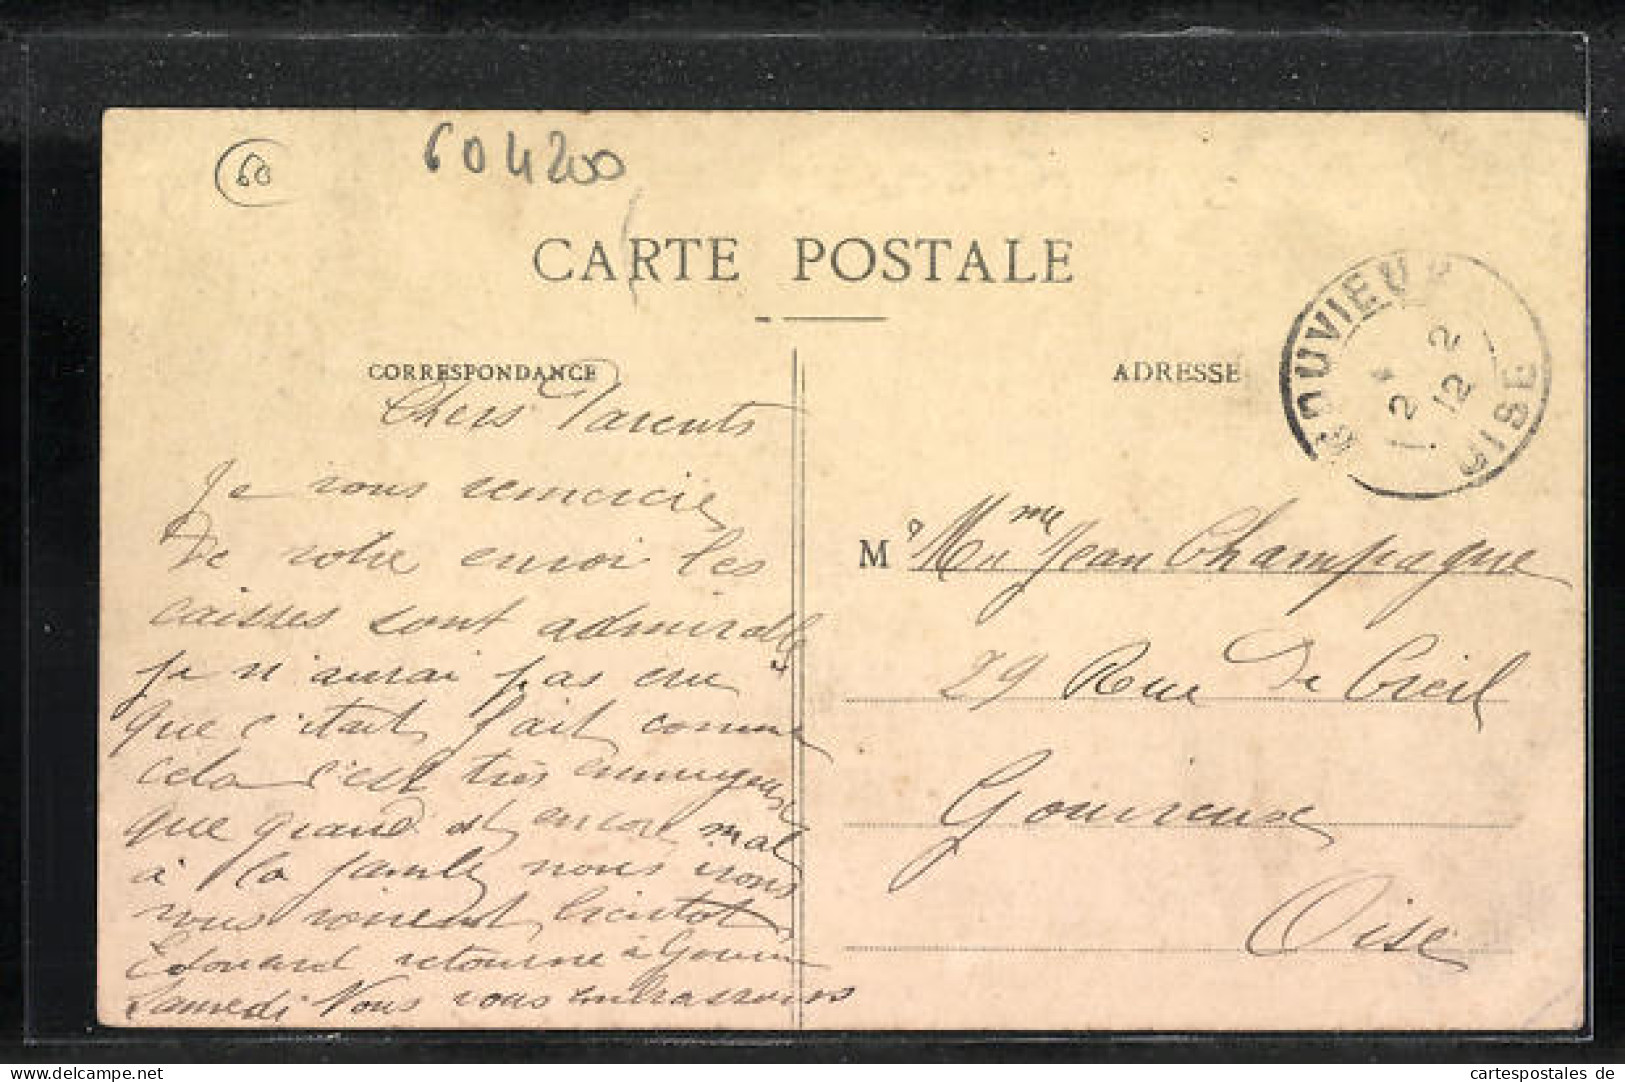 60
604200
CARTE POSTALE
CORRESPONDANCE
ADRESSE
GOUVIEUX
OISE
12 2
Chers Parents
Je vous remercie
De votre envoi les
caisses sont admirable
je n'aurai pas cru
que c'etait fait comme
cela c'est très ennuyeux
que grand est encore mal
à la jambe nous irons
vous bientot
Edouard retourne à Gouvieux
Samedi Nous vous embrassons
M Mme Jean Champagne
29 Rue De Creil
Gouvieux
Oise
www.cartespostales-delcampe.net
cartespostales de